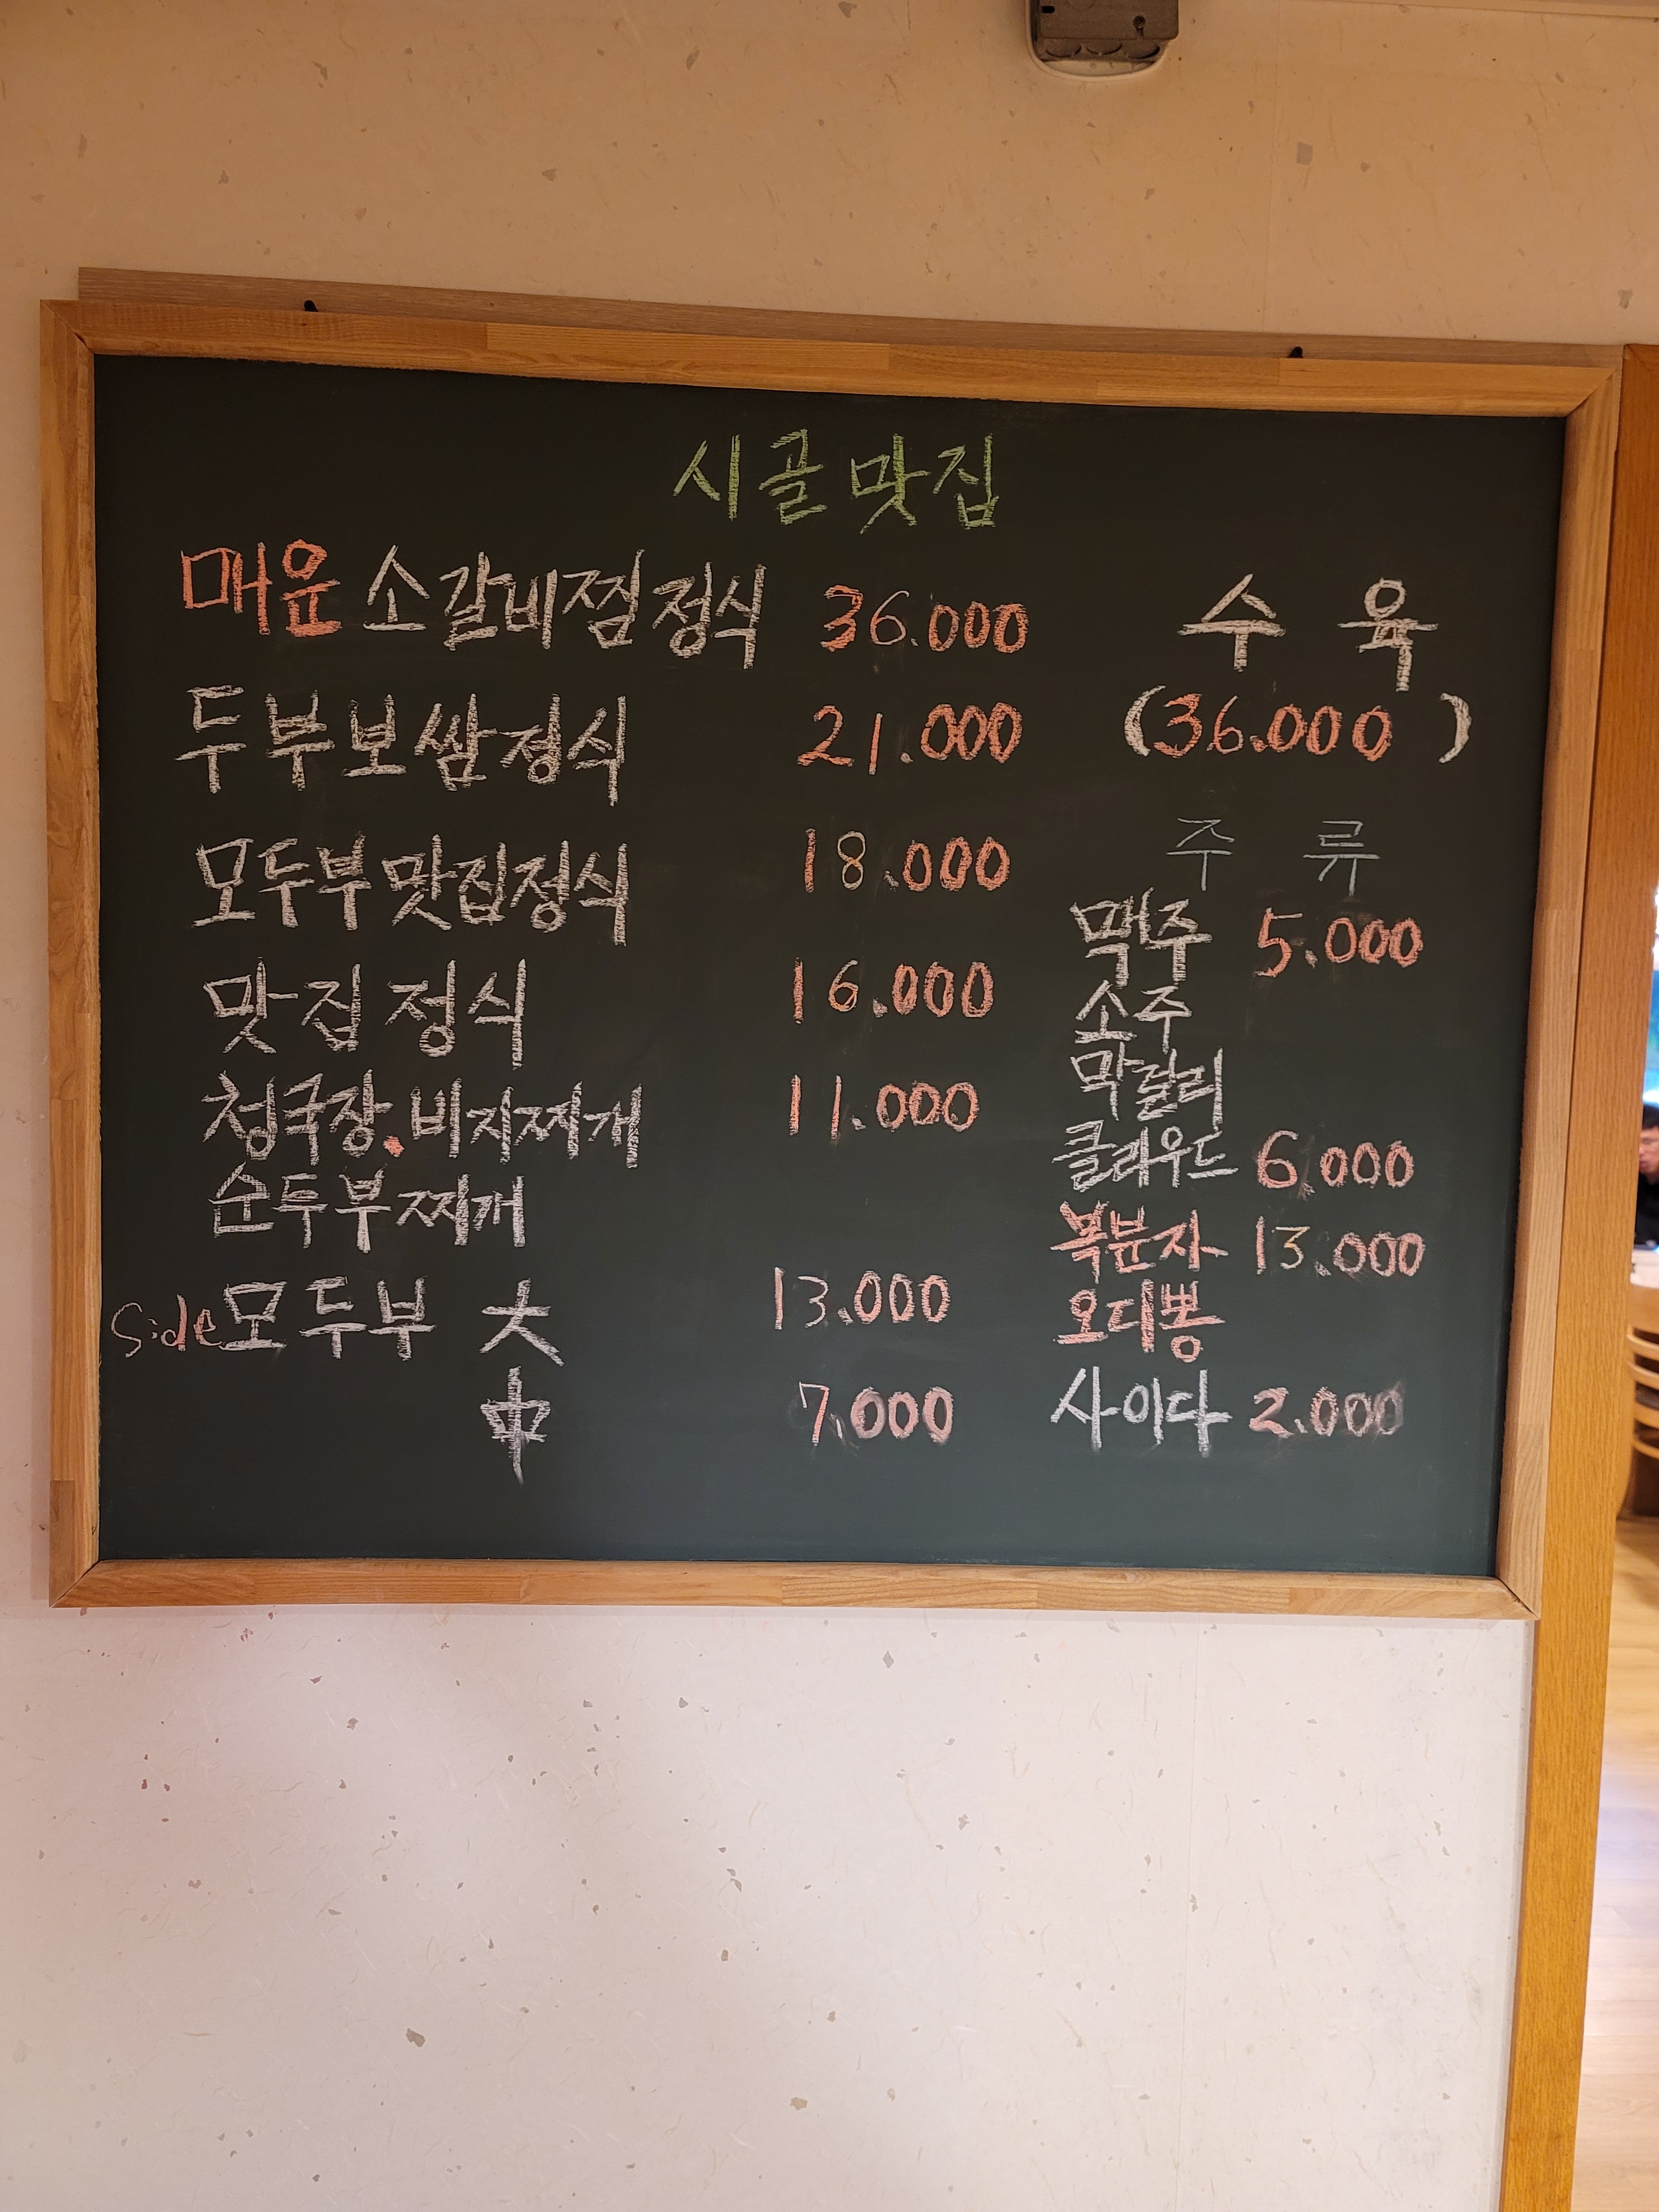 시골맛집
매운 소갈비찜정식 36.000
두부보쌈정식 21.000
모두부맛집정식 18.000
맛집정식 16.000
청국장.비지찌개 11.000
순두부찌개
Side모두부 大 13.000
中 7.000
수육
(36.000)
주류
맥주 5.000
소주
막걸리
클라우드 6.000
복분자 13.000
오디뽕
사이다 2.000